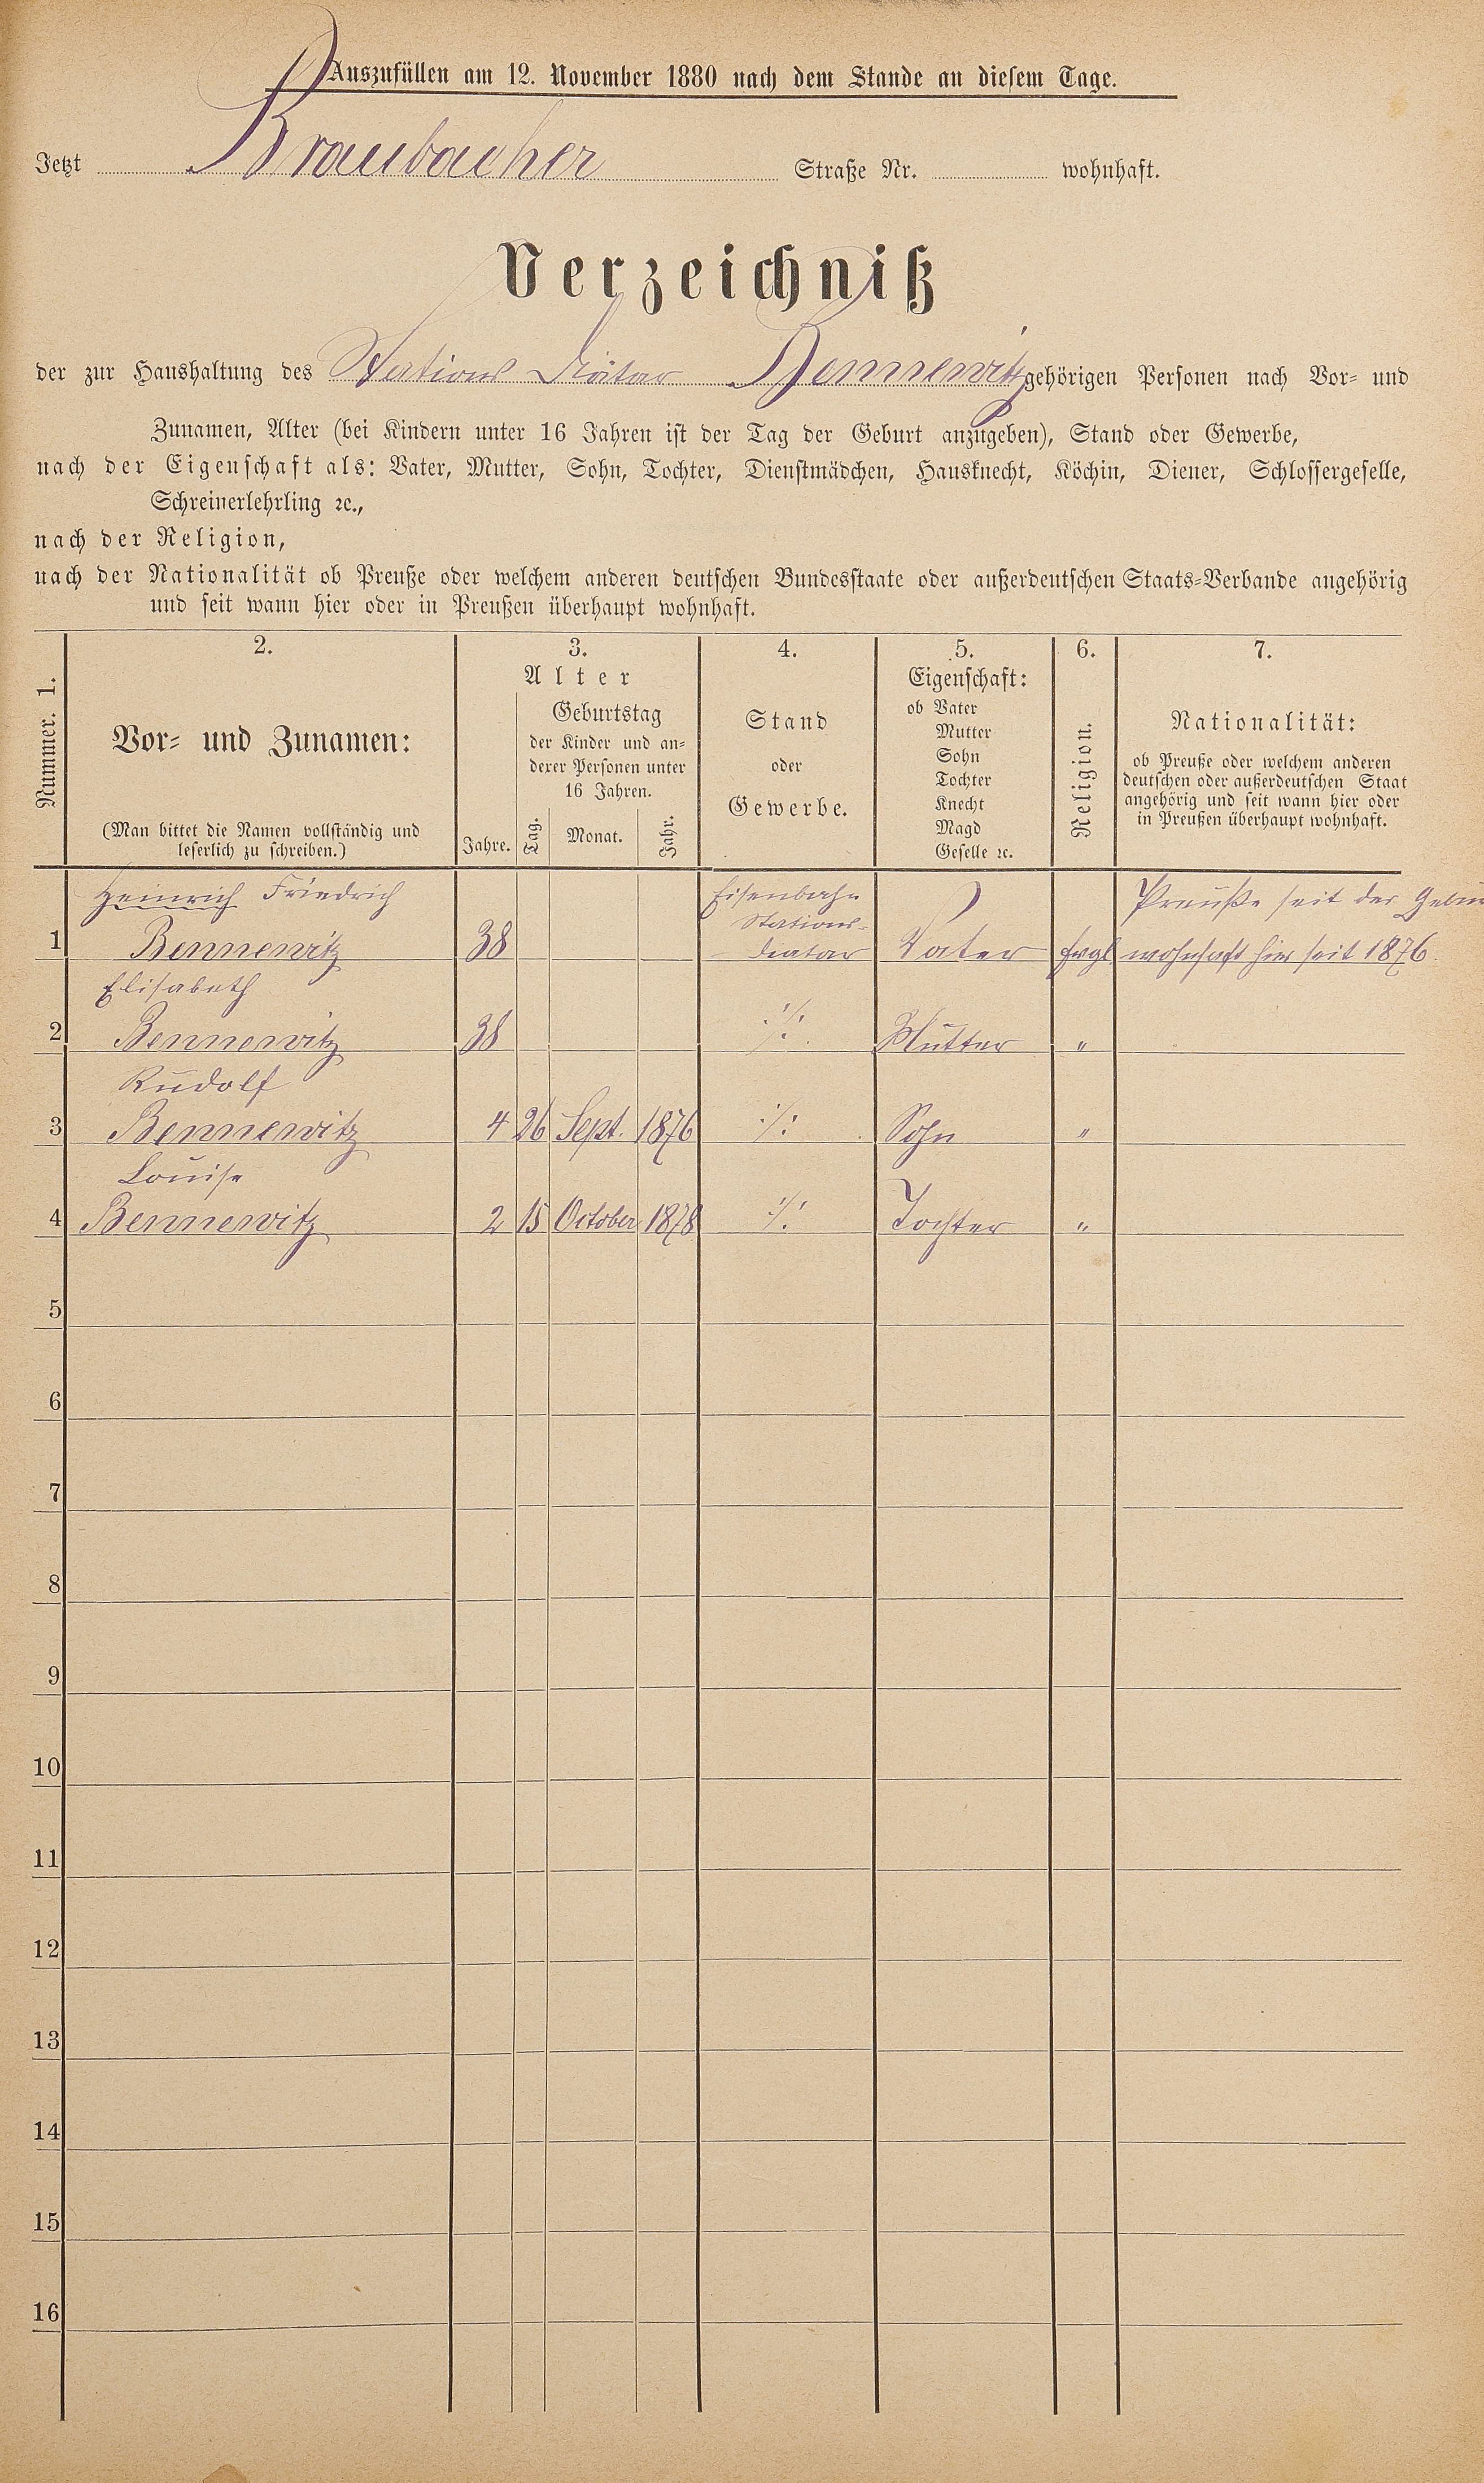 Auszufüllen am 12. November 1880 nach dem Stande an diesem Tage.
Jetzt Braubacher Straße Nr. wohnhaft.
Verzeichniß
der zur Haushaltung des Stations Diätar Bennewitz gehörigen Personen nach Vor- und
Zunamen, Alter (bei Kindern unter 16 Jahren ist der Tag der Geburt anzugeben), Stand oder Gewerbe,
nach der Eigenschaft als: Vater, Mutter, Sohn, Tochter, Dienstmädchen, Hausknecht, Köchin, Diener, Schlossergeselle,
Schreinerlehrling ꝛc.,
nach der Religion,
nach der Nationalität ob Preuße oder welchem anderen deutschen Bundesstaate oder außerdeutschen Staats-Verbande angehörig
und seit wann hier oder in Preußen überhaupt wohnhaft.
Nummer. 1.
2.
Vor- und Zunamen:
(Man bittet die Namen vollständig und
leserlich zu schreiben.)
3.
Alter
Geburtstag
der Kinder und an-
derer Personen unter
16 Jahren.
Jahre. Tag. Monat. Jahr.
4.
Stand
oder
Gewerbe.
5.
Eigenschaft:
ob Vater
Mutter
Sohn
Tochter
Knecht
Magd
Geselle ꝛc.
6.
Religion.
7.
Nationalität:
ob Preuße oder welchem anderen
deutschen oder außerdeutschen Staat
angehörig und seit wann hier oder
in Preußen überhaupt wohnhaft.
Heinrich Friedrich Eisenbahn Preuße seit der
Stations-
1 Bennewitz 38 diatar Vater Evgl wohnhaft hier seit 1876.
Elisabeth
2 Bennewitz 38 ·/· Mutter "
Rudolf
3 Bennewitz 4 26 Sept. 1876 ·/· Sohn "
Louise
4 Bennewitz 2 15 October 1878 ·/· Tochter "
5
6
7
8
9
10
11
12
13
14
15
16